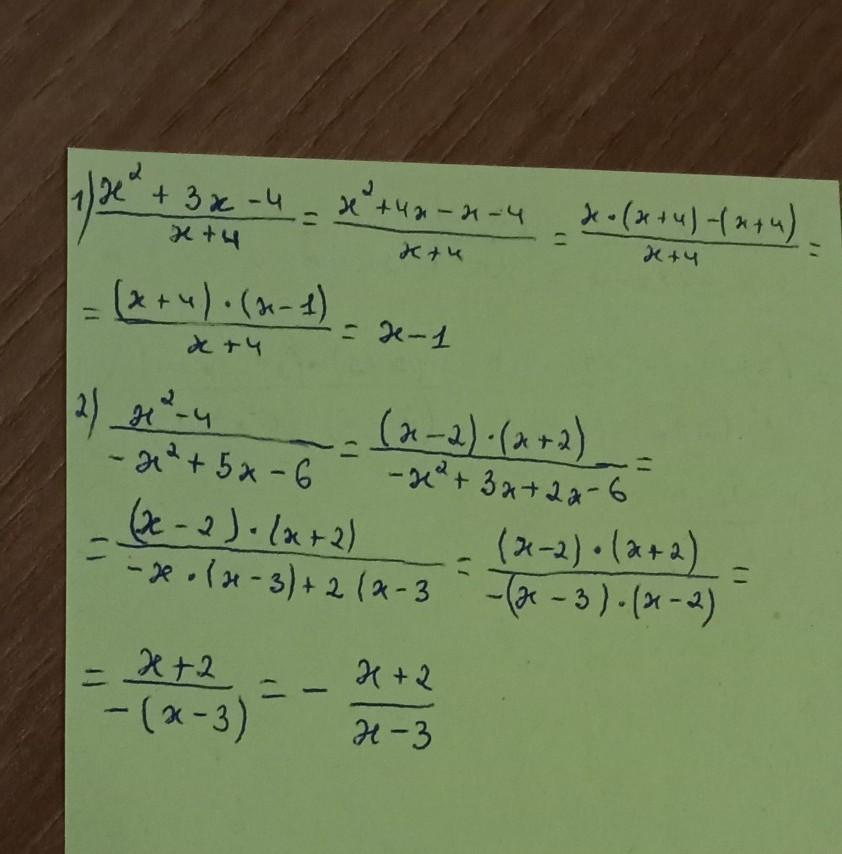 1) (x² + 3x - 4)/(x + 4) = (x² + 4x - x - 4)/(x + 4) = (x · (x + 4) - (x + 4))/(x + 4) =
= ((x + 4) · (x - 1))/(x + 4) = x - 1
2) (x² - 4)/(-x² + 5x - 6) = ((x - 2) · (x + 2))/(-x² + 3x + 2x - 6) =
= ((x - 2) · (x + 2))/(-x · (x - 3) + 2 (x - 3) = ((x - 2) · (x + 2))/(-(x - 3) · (x - 2)) =
= (x + 2)/(-(x - 3)) = - (x + 2)/(x - 3)